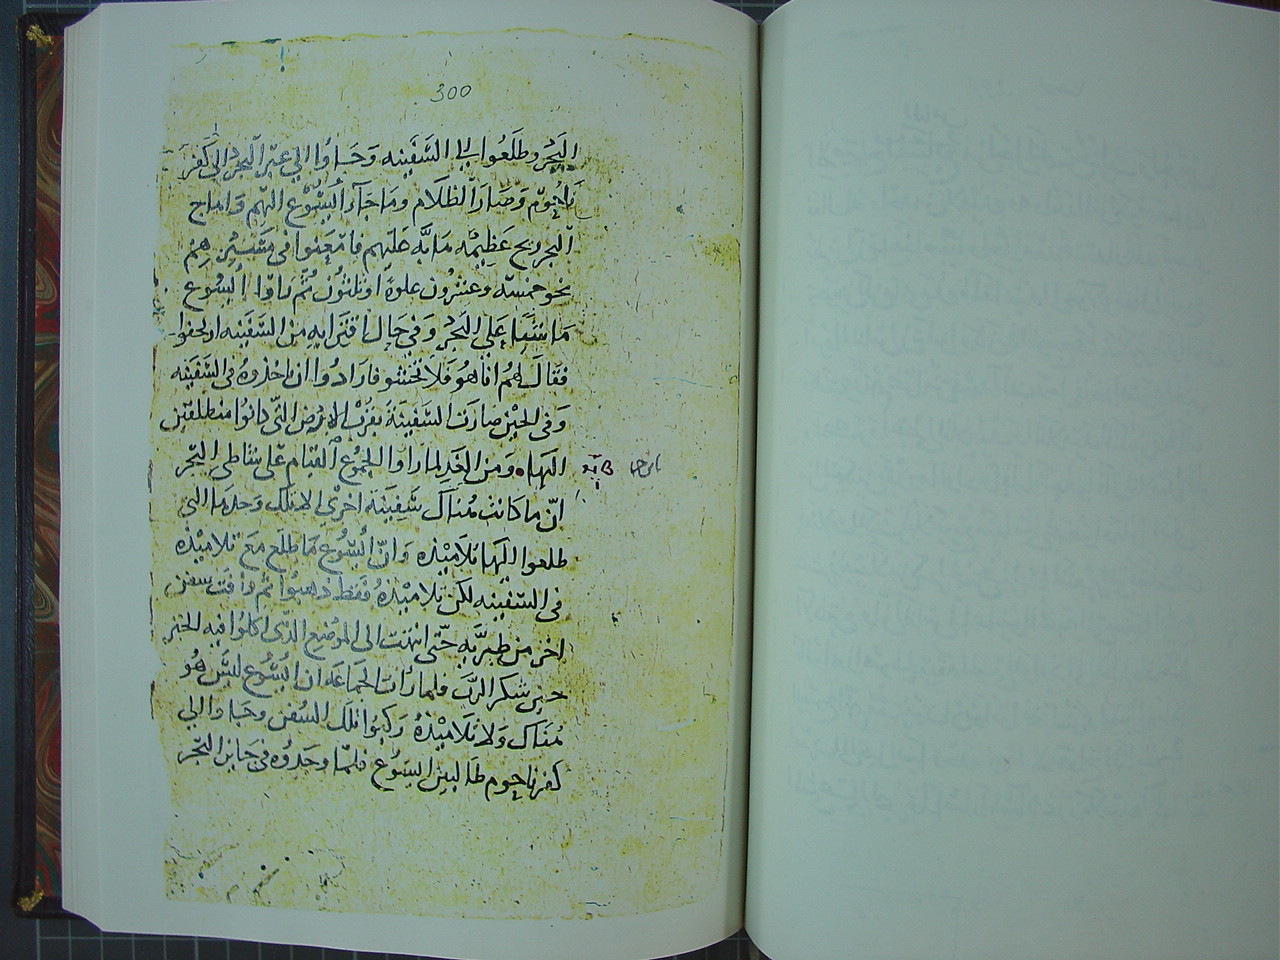 300
البَحْر وطَلَعُوا الي السَّفيَنِه وَجَاوُا الي عَبْر البَّحْر الي كَفر
نَاحُوم وَصَارَ الظَلَام ومَا جَآءَ اَيسُوْع اليهم وَاماج
البحر ريح عَظِيْمه مَابَّه عَليَهم فامْعَنوا في مَسَيْرهِم
نحو خمسَه وَعشرُون غلوةً او ثلثُون ثُمَّ راوْا اَيسُوع
مَاشيًا عَلي البَحْر وَفي حَال اقتِرَابِه مِن السَّفَيْنه ارتجفوا
فقَالَ لهُم انا هُو فَلا تخشو فارَادُوا ان ياخذوهُ في السَّفَيْنِه
وَفي الحَيْن صَارَت السَّفينَة بقُرْب الارْض التّي كانوا منطلقيْن
اليَهَا ومِن الغَد لما راوا الجمُوع القيَام عَلي شَاطي البَحْر
انّ ما كانت هُنَاك سَّفِيَنَه اخرَي الا تلك وَحدهَا التي
طلعوا اليَها تلَامَيْذه وَانّ اَيسُوع مَا طلع مَعَ تلاميَذه
في السَّفينِه لكن تلامَيْذهُ فقط ذهبوُا ثم وافت سفن
اخر من طبَريَّه حَتي انتهَت الي الموْضِع الذي اكلوُا فيه الخبز
حين شكر الرَبَ فلما رَأت الجمَاعَه ان اَيسُوع ليسَ هُو
هُنَاك وَلا تلَامَيْذهُ رَكبوُا تلكَ السُفن وَجاوا الي
كفرناحوم طَالبين اليَسوُع فلمّا وجَدوُه في جَانِز البَحْر